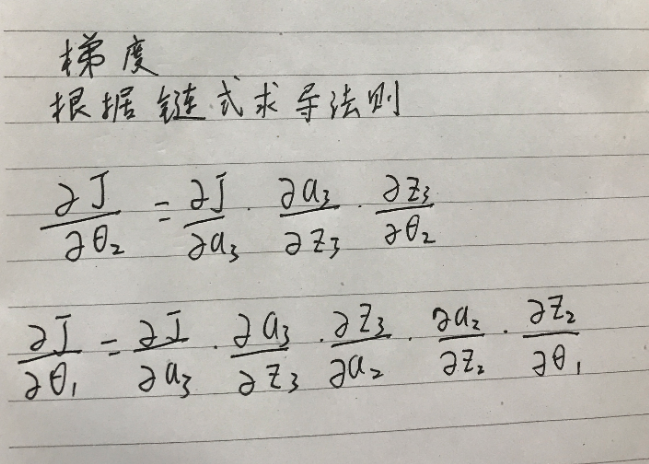 梯度
根据链式求导法则
∂J/∂θ₂ = ∂J/∂a₃ · ∂a₃/∂z₃ · ∂z₃/∂θ₂
∂J/∂θ₁ = ∂J/∂a₃ · ∂a₃/∂z₃ · ∂z₃/∂a₂ · ∂a₂/∂z₂ · ∂z₂/∂θ₁